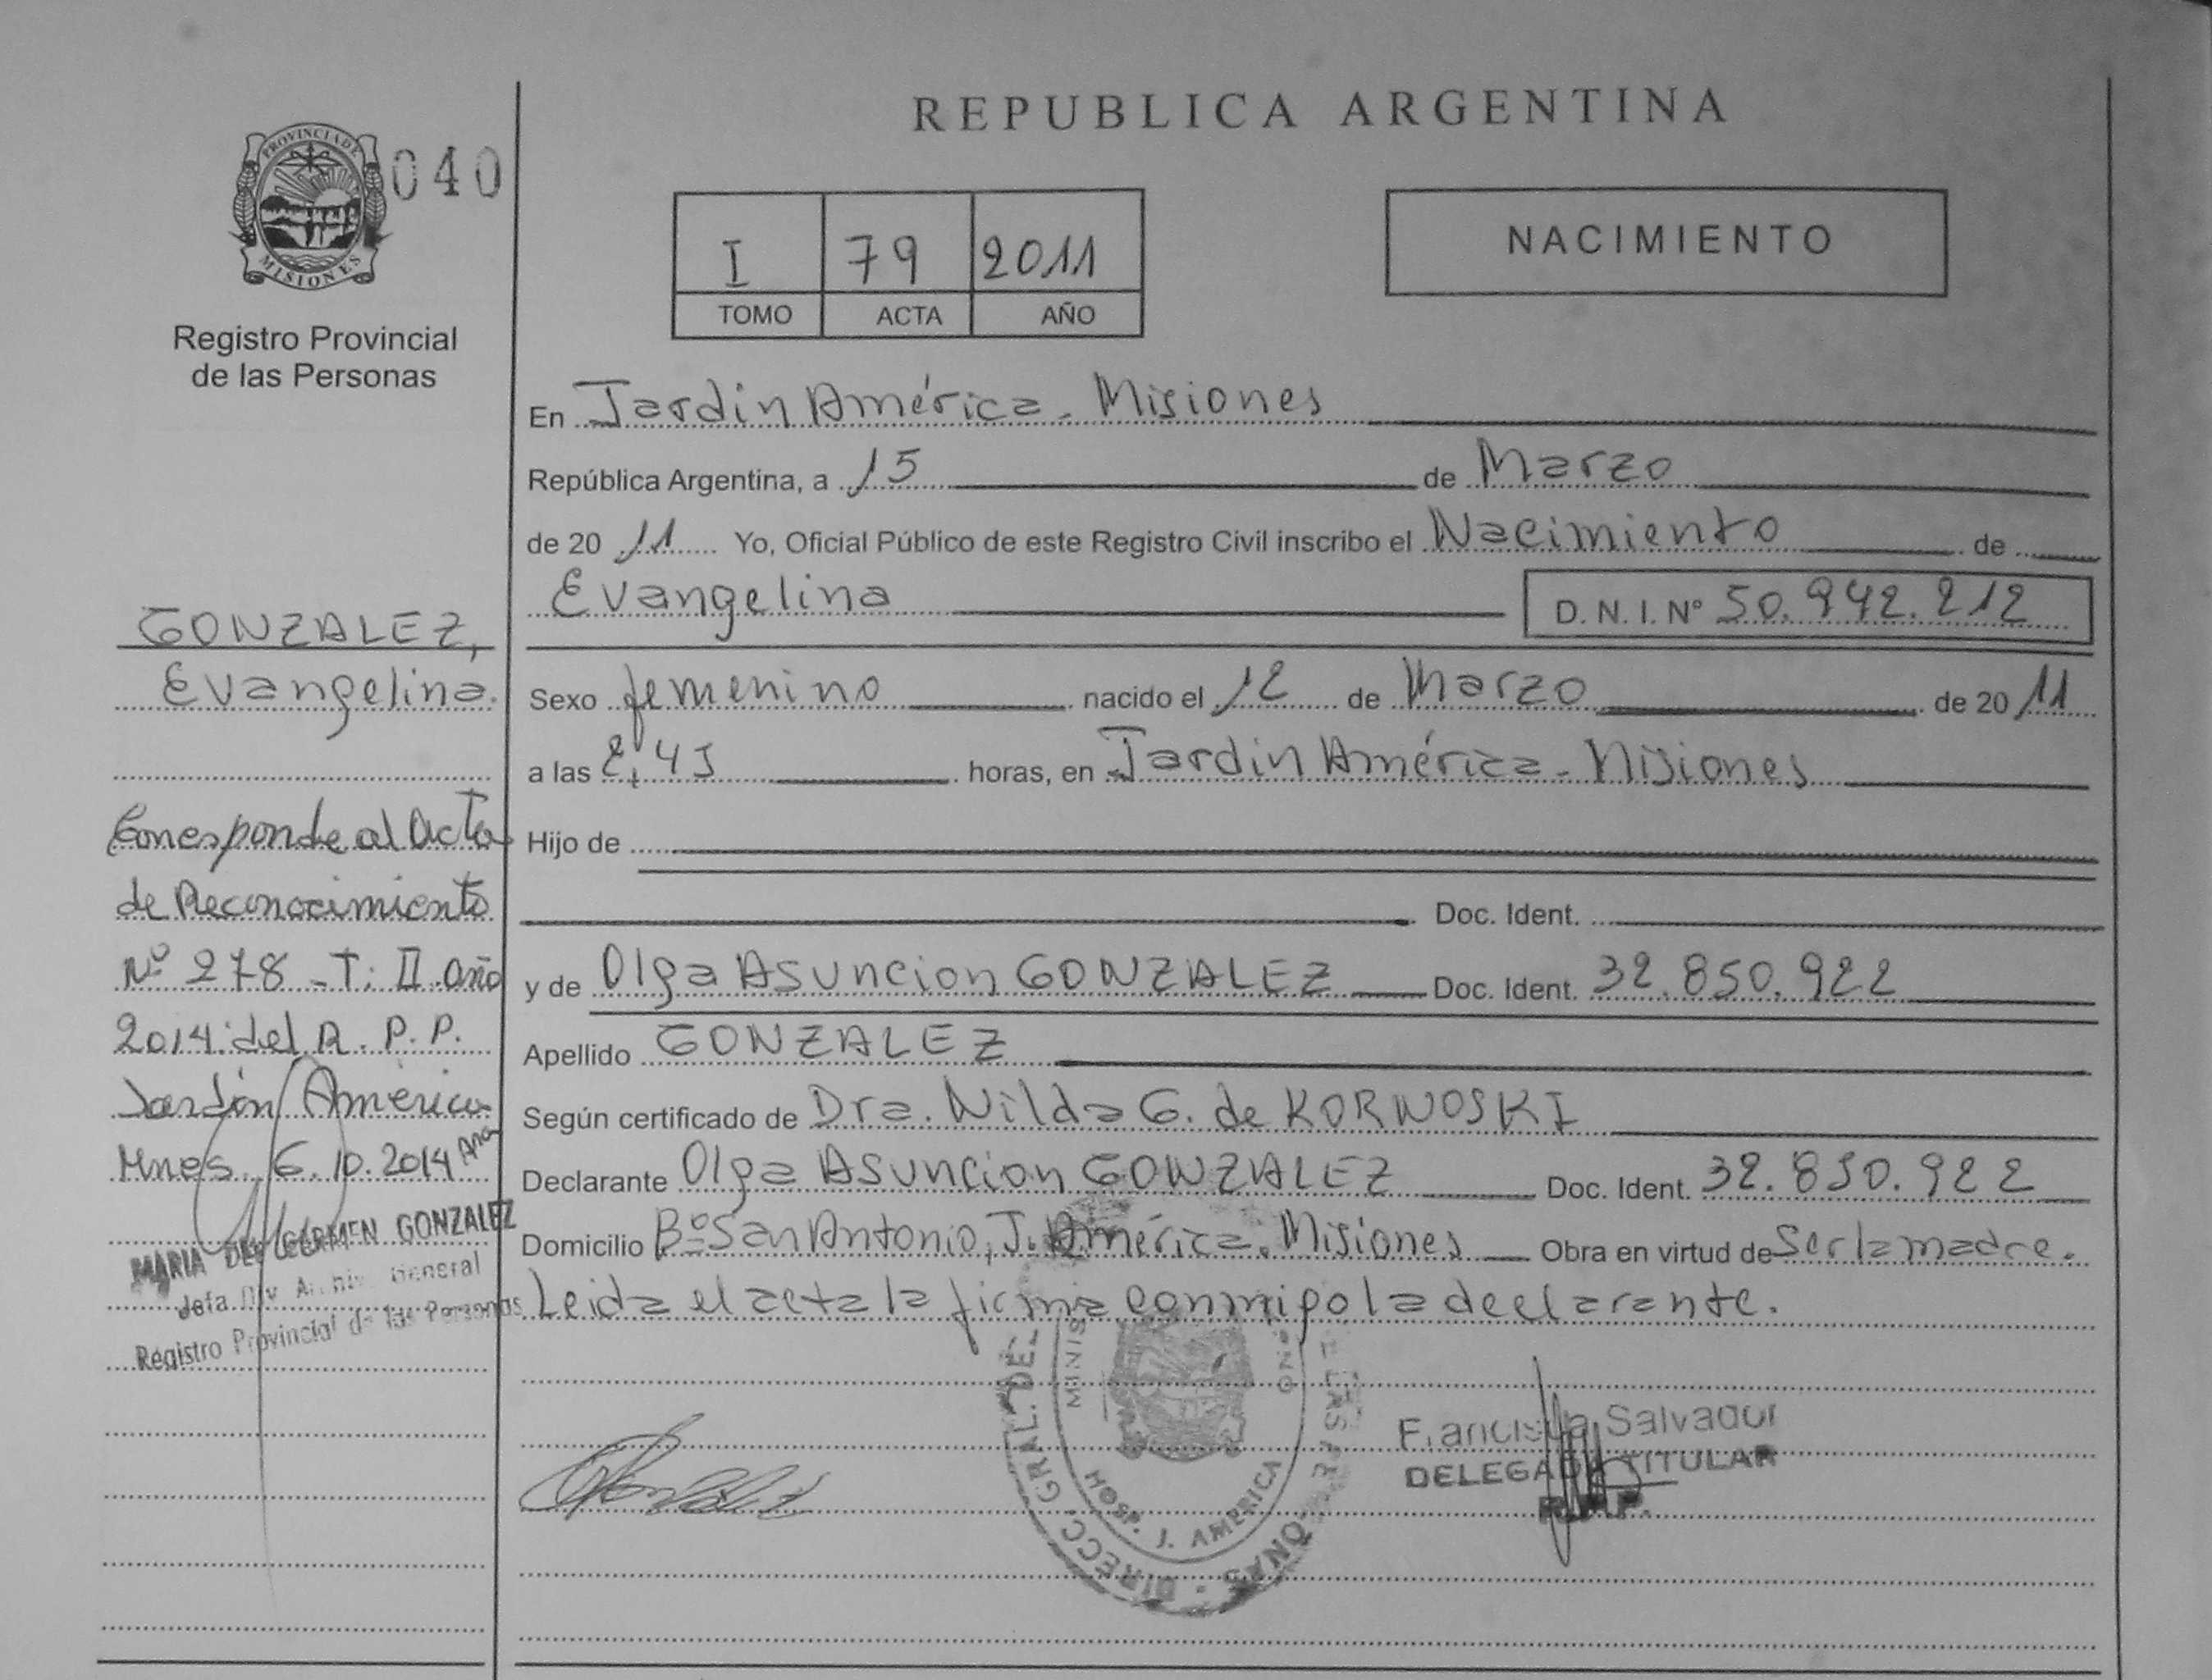 REPUBLICA ARGENTINA
PROVINCIA DE
MISIONES
040
Registro Provincial
de las Personas
I 79 2011
TOMO ACTA AÑO
NACIMIENTO
En Jardín América - Misiones
República Argentina, a 15 de Marzo
de 20 11 Yo, Oficial Público de este Registro Civil inscribo el Nacimiento de
Evangelina D. N. I. Nº 50.942.212
Sexo femenino nacido el 12 de Marzo de 20 11
a las horas, en Jardín América - Misiones
Hijo de
Doc. Ident.
y de Olga Asunción GONZALEZ Doc. Ident. 32.850.922
Apellido GONZALEZ
Según certificado de Dra. Nilda G. de KORNOSKI
Declarante Olga Asunción GONZALEZ Doc. Ident. 32.850.922
Domicilio Bº San Antonio, J. América. Misiones Obra en virtud de ser la madre.
Leida el acta la firma conmigo la declarante.
GONZALEZ,
Evangelina.
Corresponde al Acta
de Reconocimiento
Nº 278 - T: II año
2014 del R. P. P.
Jardín América
Mnes. 6.10.2014
MARIA DEL CARMEN GONZALEZ
Jefa Div. Archivo General
Registro Provincial de las Personas
DIRECC. GRAL. DEL
MINIS
HOSP. J. AMERICA
Francisca Salvador
DELEGADA TITULAR
R.P.P.